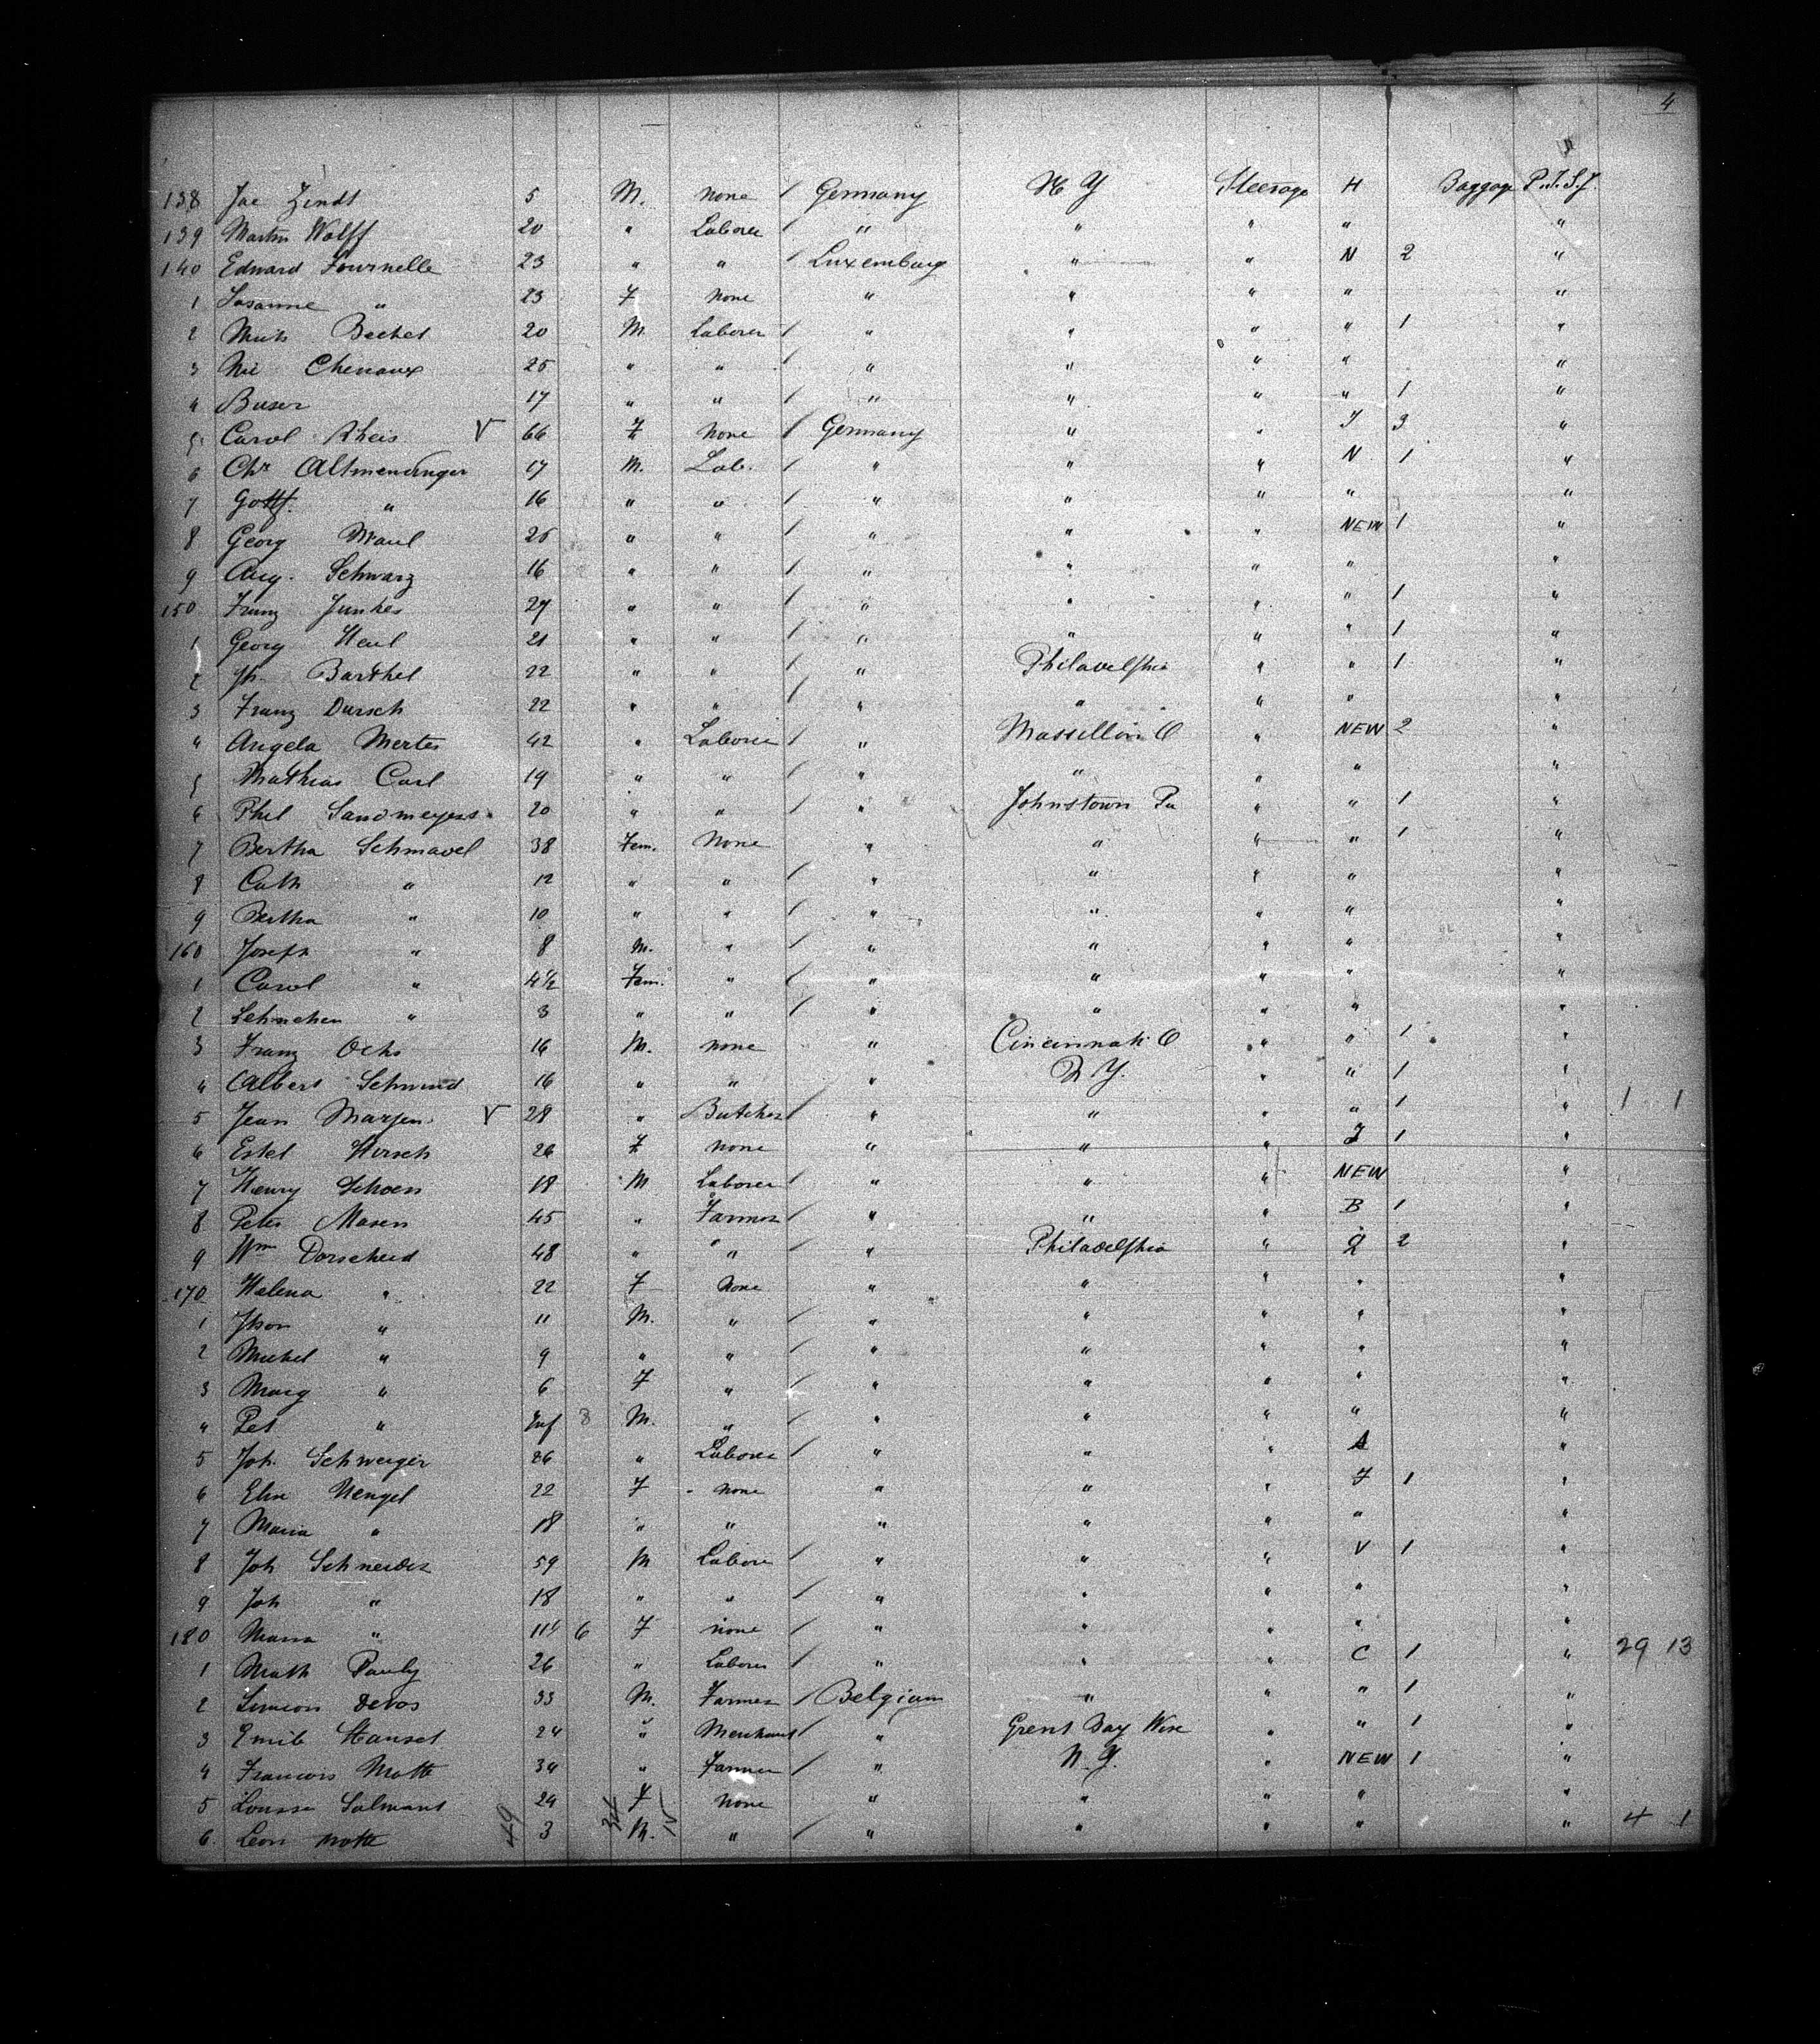 4
138 Jac Zindt 5 M. None / Germany N Y Steerage H Baggage P.I.S.J.
139 Martin Wolff 20 " Laborer / " " " " "
140 Edward Fournelle 23 " " / Luxemburg " " N 2 "
1 Susanne " 23 F None " " " " "
2 Mich Bechet 20 M. Laborer / " " " " 1 "
3 Nic Chenaux 25 " " / " " " " "
4 Buser 17 " " / " " " " 1 "
5 Carol Rheis V 66 F. None / Germany " " 3 "
6 Chr Altmendinger 17 M. Lab. / " " " N 1 "
7 Gottf. " 16 " " / " " " " "
8 Georg Maul 25 " " / " " " NEW 1 "
9 Aug. Schwarz 16 " " / " " " " "
150 Franz Junkes 27 " " / " " " " 1 "
1 Georg Heul 21 " " / " " " " 1 "
2 Jh. Barthel 22 " " / " Philadelphia " " 1 "
3 Franz Dursch 22 " " / " " " " "
4 Angela Mertes 42 " Laborer / " Massillon O " NEW 2 "
5 Mathias Carl 19 " " / " " " " "
6 Phil Sandmeyers 20 " " / " Johnstown Pa " " 1 "
7 Bertha Schmadel 38 Fem. None " " " " 1 "
8 Cath " 12 " " / " " " " "
9 Bertha " 10 " " / " " " " "
160 Joseph " 8 M. " / " " " " "
1 Carol " 4½ Fem. " / " " " " "
2 Lehnchen " 3 " " / " " " " "
3 Franz Ochs 16 M. None " Cincinnati O " " 1 "
4 Albert Schmid 16 " " / " N Y. " " 1 "
5 Jean Marjen V 28 " Butcher / " " " " 1 " 1 1
6 Estel Hirsch 26 F none " " " 1 "
7 Henry Schoen 18 M Laborer / " " " NEW "
8 Peter Masen 45 " Farmer / " " " B 1 "
9 Wm Dorscheid 48 " " / " Philadelphia " 2 "
170 Helena " 22 F None " " " " "
1 Jhon " 11 M. " / " " " " "
2 Michel " 9 " " / " " " " "
3 Marg " 6 F " / " " " " "
4 Pet " Inf 3 M. " / " " " " "
5 Joh. Schweiger 26 " Laborer / " " " A "
6 Elise Hengel 22 F None " " " F 1 "
7 Maria " 18 " " " " " " "
8 Joh Schneider 59 M Laborer / " " " V 1 "
9 Joh " 18 " " / " " " " "
180 Maria " 11 6 F none / " " " " "
1 Math Pauly 26 " Laborer / " " " C 1 " 29 13
2 Simeon Devos 33 M. Farmer / Belgium " " " 1 "
3 Emile Hanset 24 " Merchant / " Green Bay Wisc " " 1 "
4 Francois Motte 34 " Farmer / " N.Y. " NEW 1 "
5 Louise Salmant 24 F None " " " " "
6. Leon Motte 49 3 34 M. 15 " / " " " " " 4 1